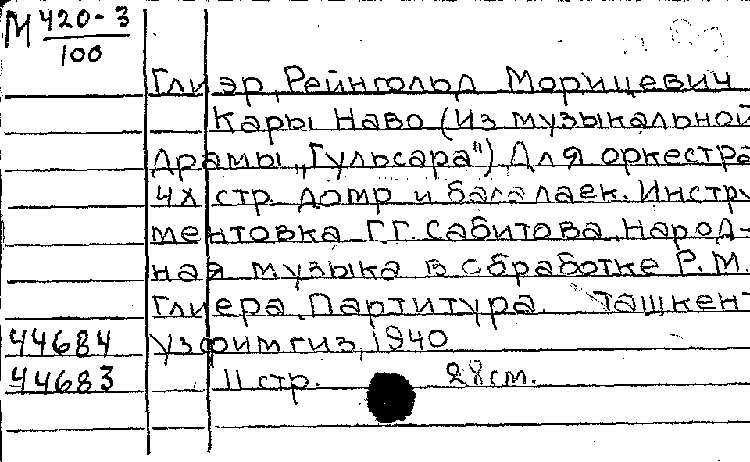 М 420-3
100
Глиэр, Рейнгольд Морицевич
Кары Наво (Из музыкальной
драмы „Гульсара") Для оркестра
4х стр. домр и балалаек. Инстру
ментовка Г.Г. Сабитова. Народ-
ная музыка в обработке Р.М.
Глиера. Партитура. Ташкент
44684 Узфимгиз, 1940
44683 11 стр. 28 см.